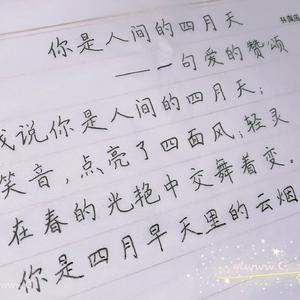 你是人间的四月天
——一句爱的赞颂
我说你是人间的四月天；
笑音，点亮了四面风；轻灵
在春的光艳中交舞着变。
你是四月早天里的云烟